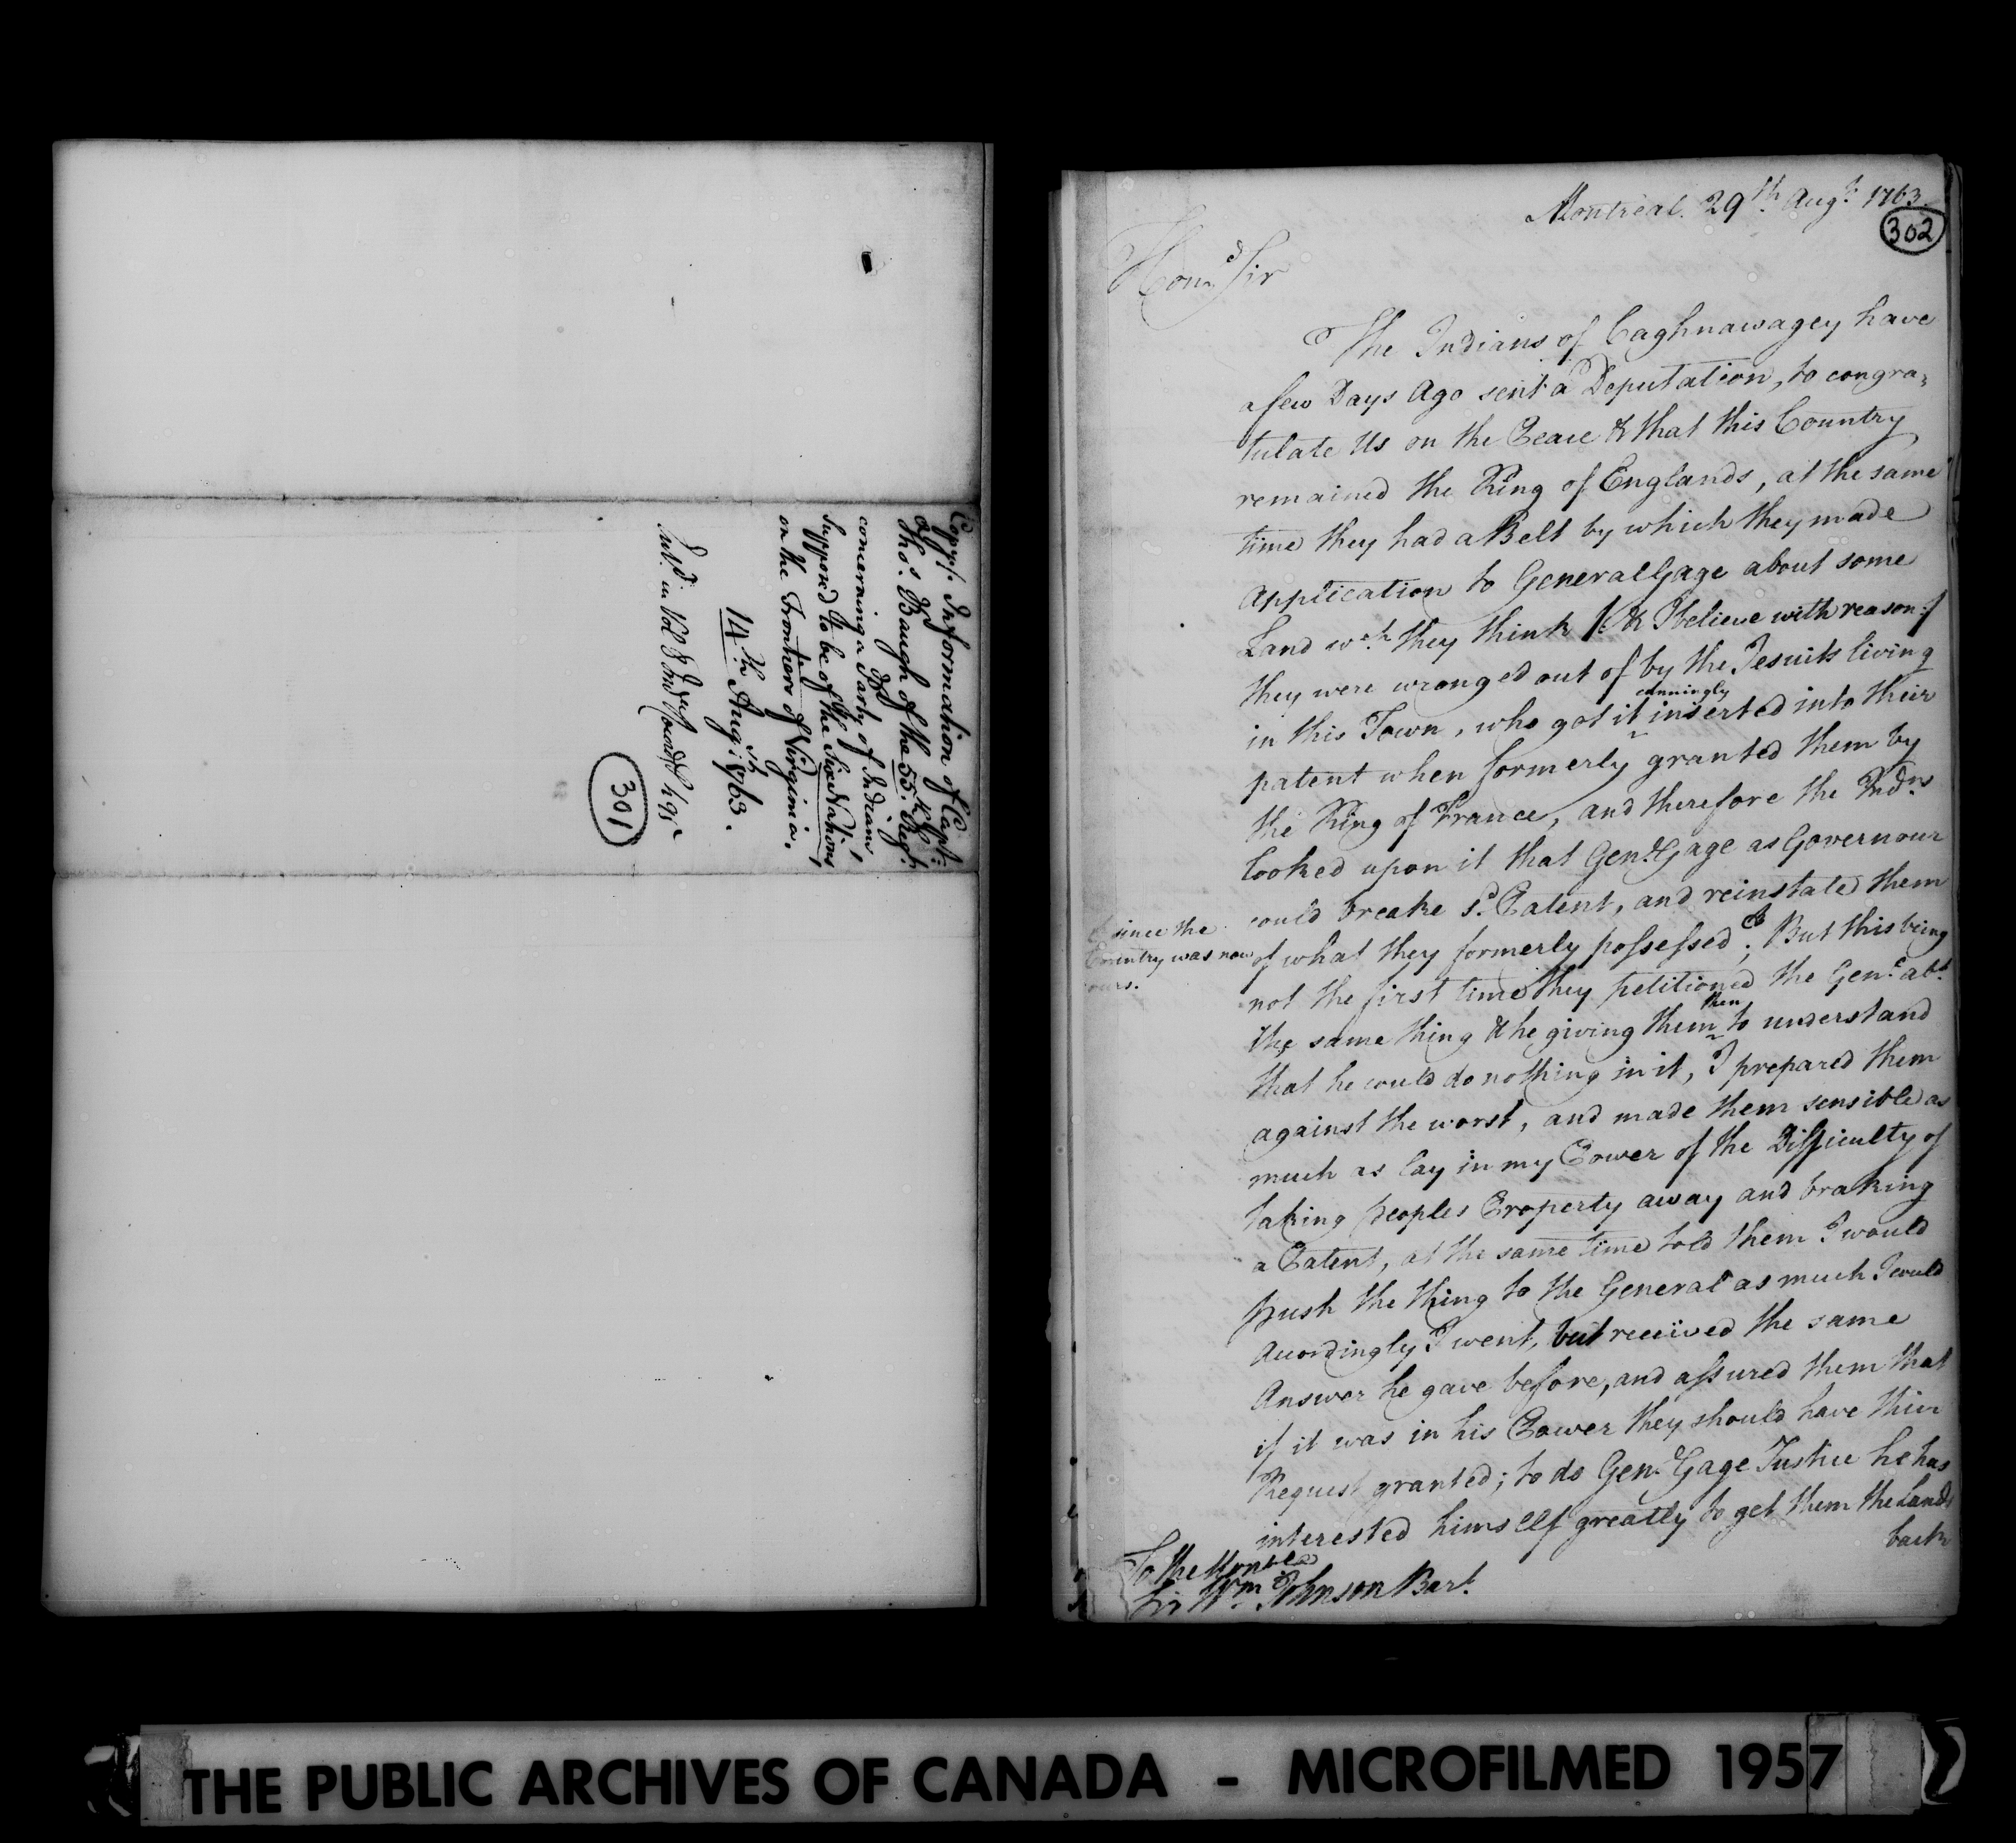 Copy/. Information of Capt:
Thos. Baugh of the 35th. Regt.
concerning a Party of Indians,
Suppos'd to be of the Six Nations,
on the Frontiers of Virginia.
14th. Augst. 1763.
Ent'd. in Vol
301
Montreal. 29th. Augt. 1763.
302
Hond. Sir
The Indians of Caghnawagey have
a few Days Ago sent a Deputation, to congra=
tulate Us on the Peace & that this Country
remained the King of Englands, at the same
time they had a Belt by which they made
Application to General Gage about some
Land wch. they think /: & I believe with reason :/
they were wronged out of by the Jesuits living
in this Town, who got it cunningly inserted into their
patent when formerly granted them by
the King of France, and therefore the Indns.
looked upon it that Genl. Gage as Governour
could breake sd. Patent, and reinstated them
& since the
Country was now
ours.
of what they formerly possessed; But this being
not the first time they petitioned the Genl. abt.
the same thing & he giving them then to understand
that he could do nothing in it, I prepared them
against the worst, and made them sensible as
much as lay in my Power of the Difficulty of
taking peoples Property away and braking
a Patent, at the same time told them I would
push the thing to the General as much I could
Acordingly I went, but received the same
Answer he gave before, and assured them that
if it was in his Power they should have their
Request granted; to do Genl. Gage Justice he has
interested himself greatly to get them the Lands
back
To the Honble.
Sir Wm. Johnson Bart.
THE PUBLIC ARCHIVES OF CANADA - MICROFILMED 1957